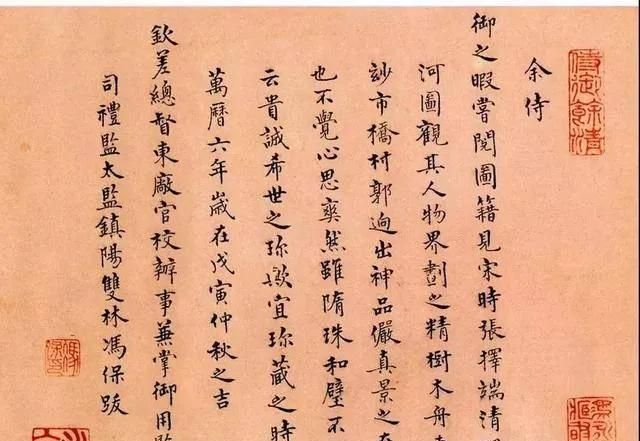 侍御餘清
余侍
御之暇嘗閱圖籍見宋時張擇端清
河圖觀其人物界劃之精樹木舟
玅市橋村郭逈出神品儼真景之
也不覺心思爽然雖隋珠和璧不
云貴誠希世之珎歟宜珎藏之時
萬曆六年歲在戊寅仲秋之吉
欽差總督東廠官校辦事兼掌御用監
司禮監太監鎮陽雙林馮保跋